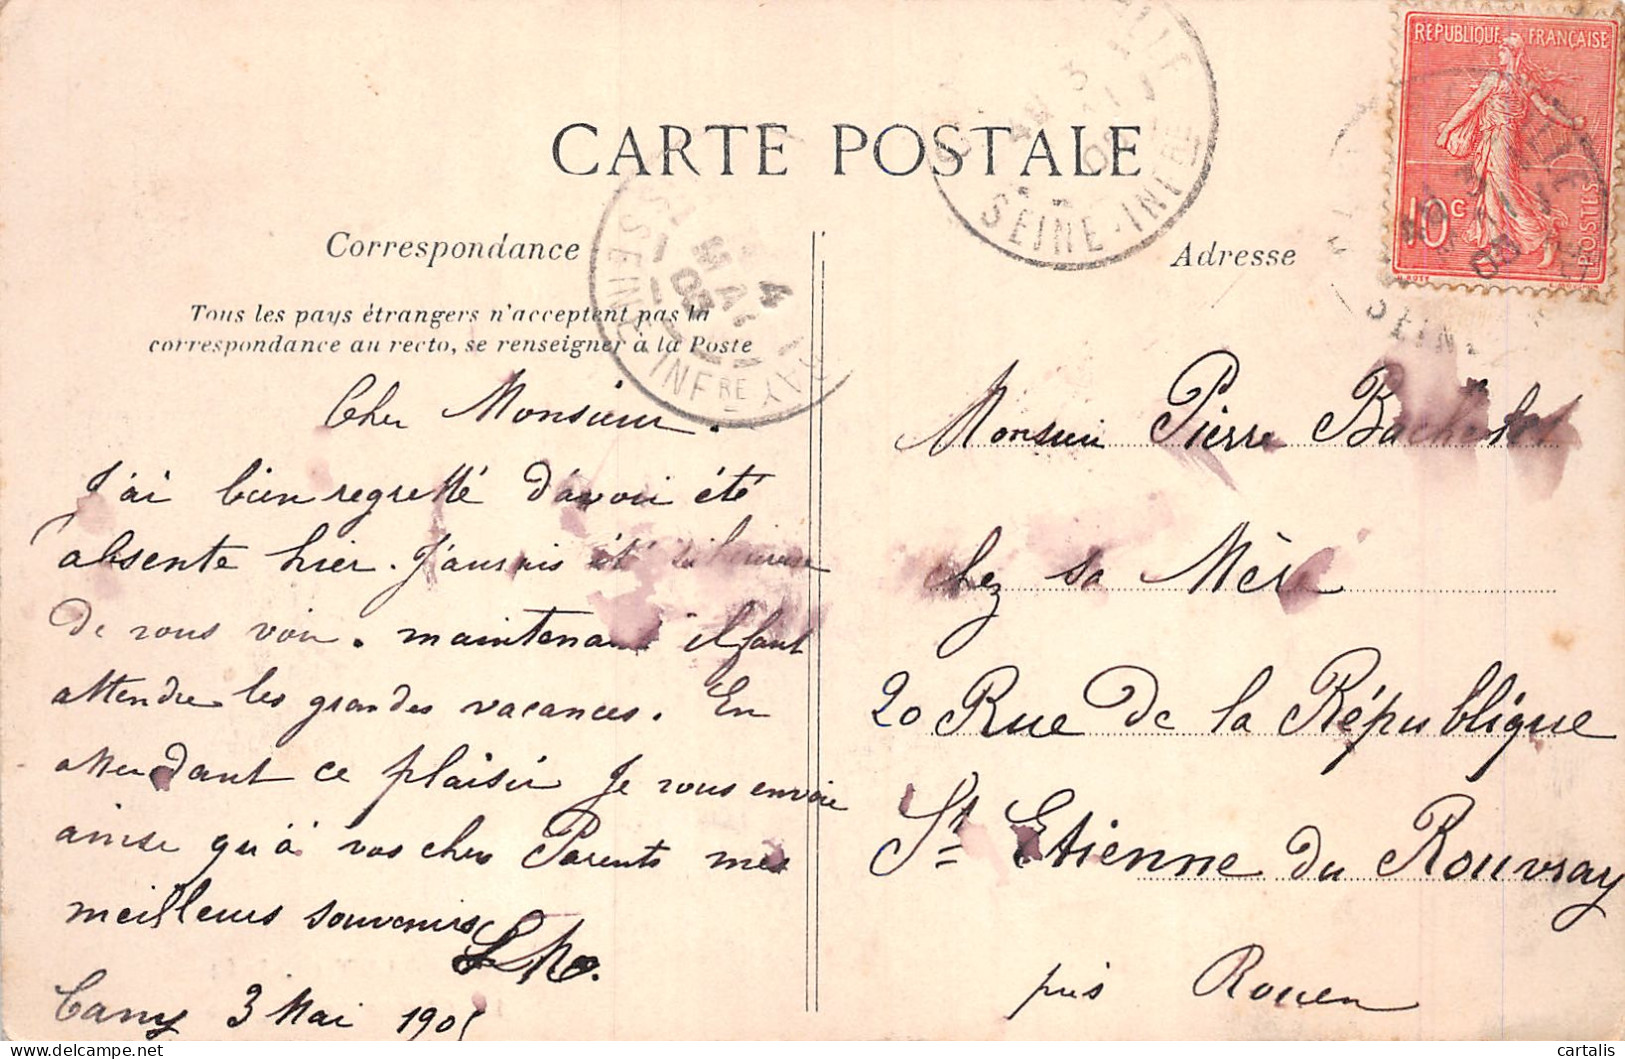 CARTE POSTALE
Correspondance
Tous les pays étrangers n'acceptent pas la
correspondance au recto, se renseigner à la Poste
Cher Monsieur.
J'ai bien regretté d'avoir été
absente hier. J'aurais été si heureuse
de vous voir. maintenant il faut
attendre les grandes vacances. En
attendant ce plaisir je vous envoie
ainsi qu'à vos chers Parents mes
meilleurs souvenirs
Cany 3 Mai 1905
Adresse
Monsieur Pierre Bachelot
chez sa Mère
20 Rue de la République
St Etienne du Rouvray
près Rouen
REPUBLIQUE FRANÇAISE
10c
POSTES
SEINE-INFRE
4
MAI
05
SEINE INFRE
cartalis